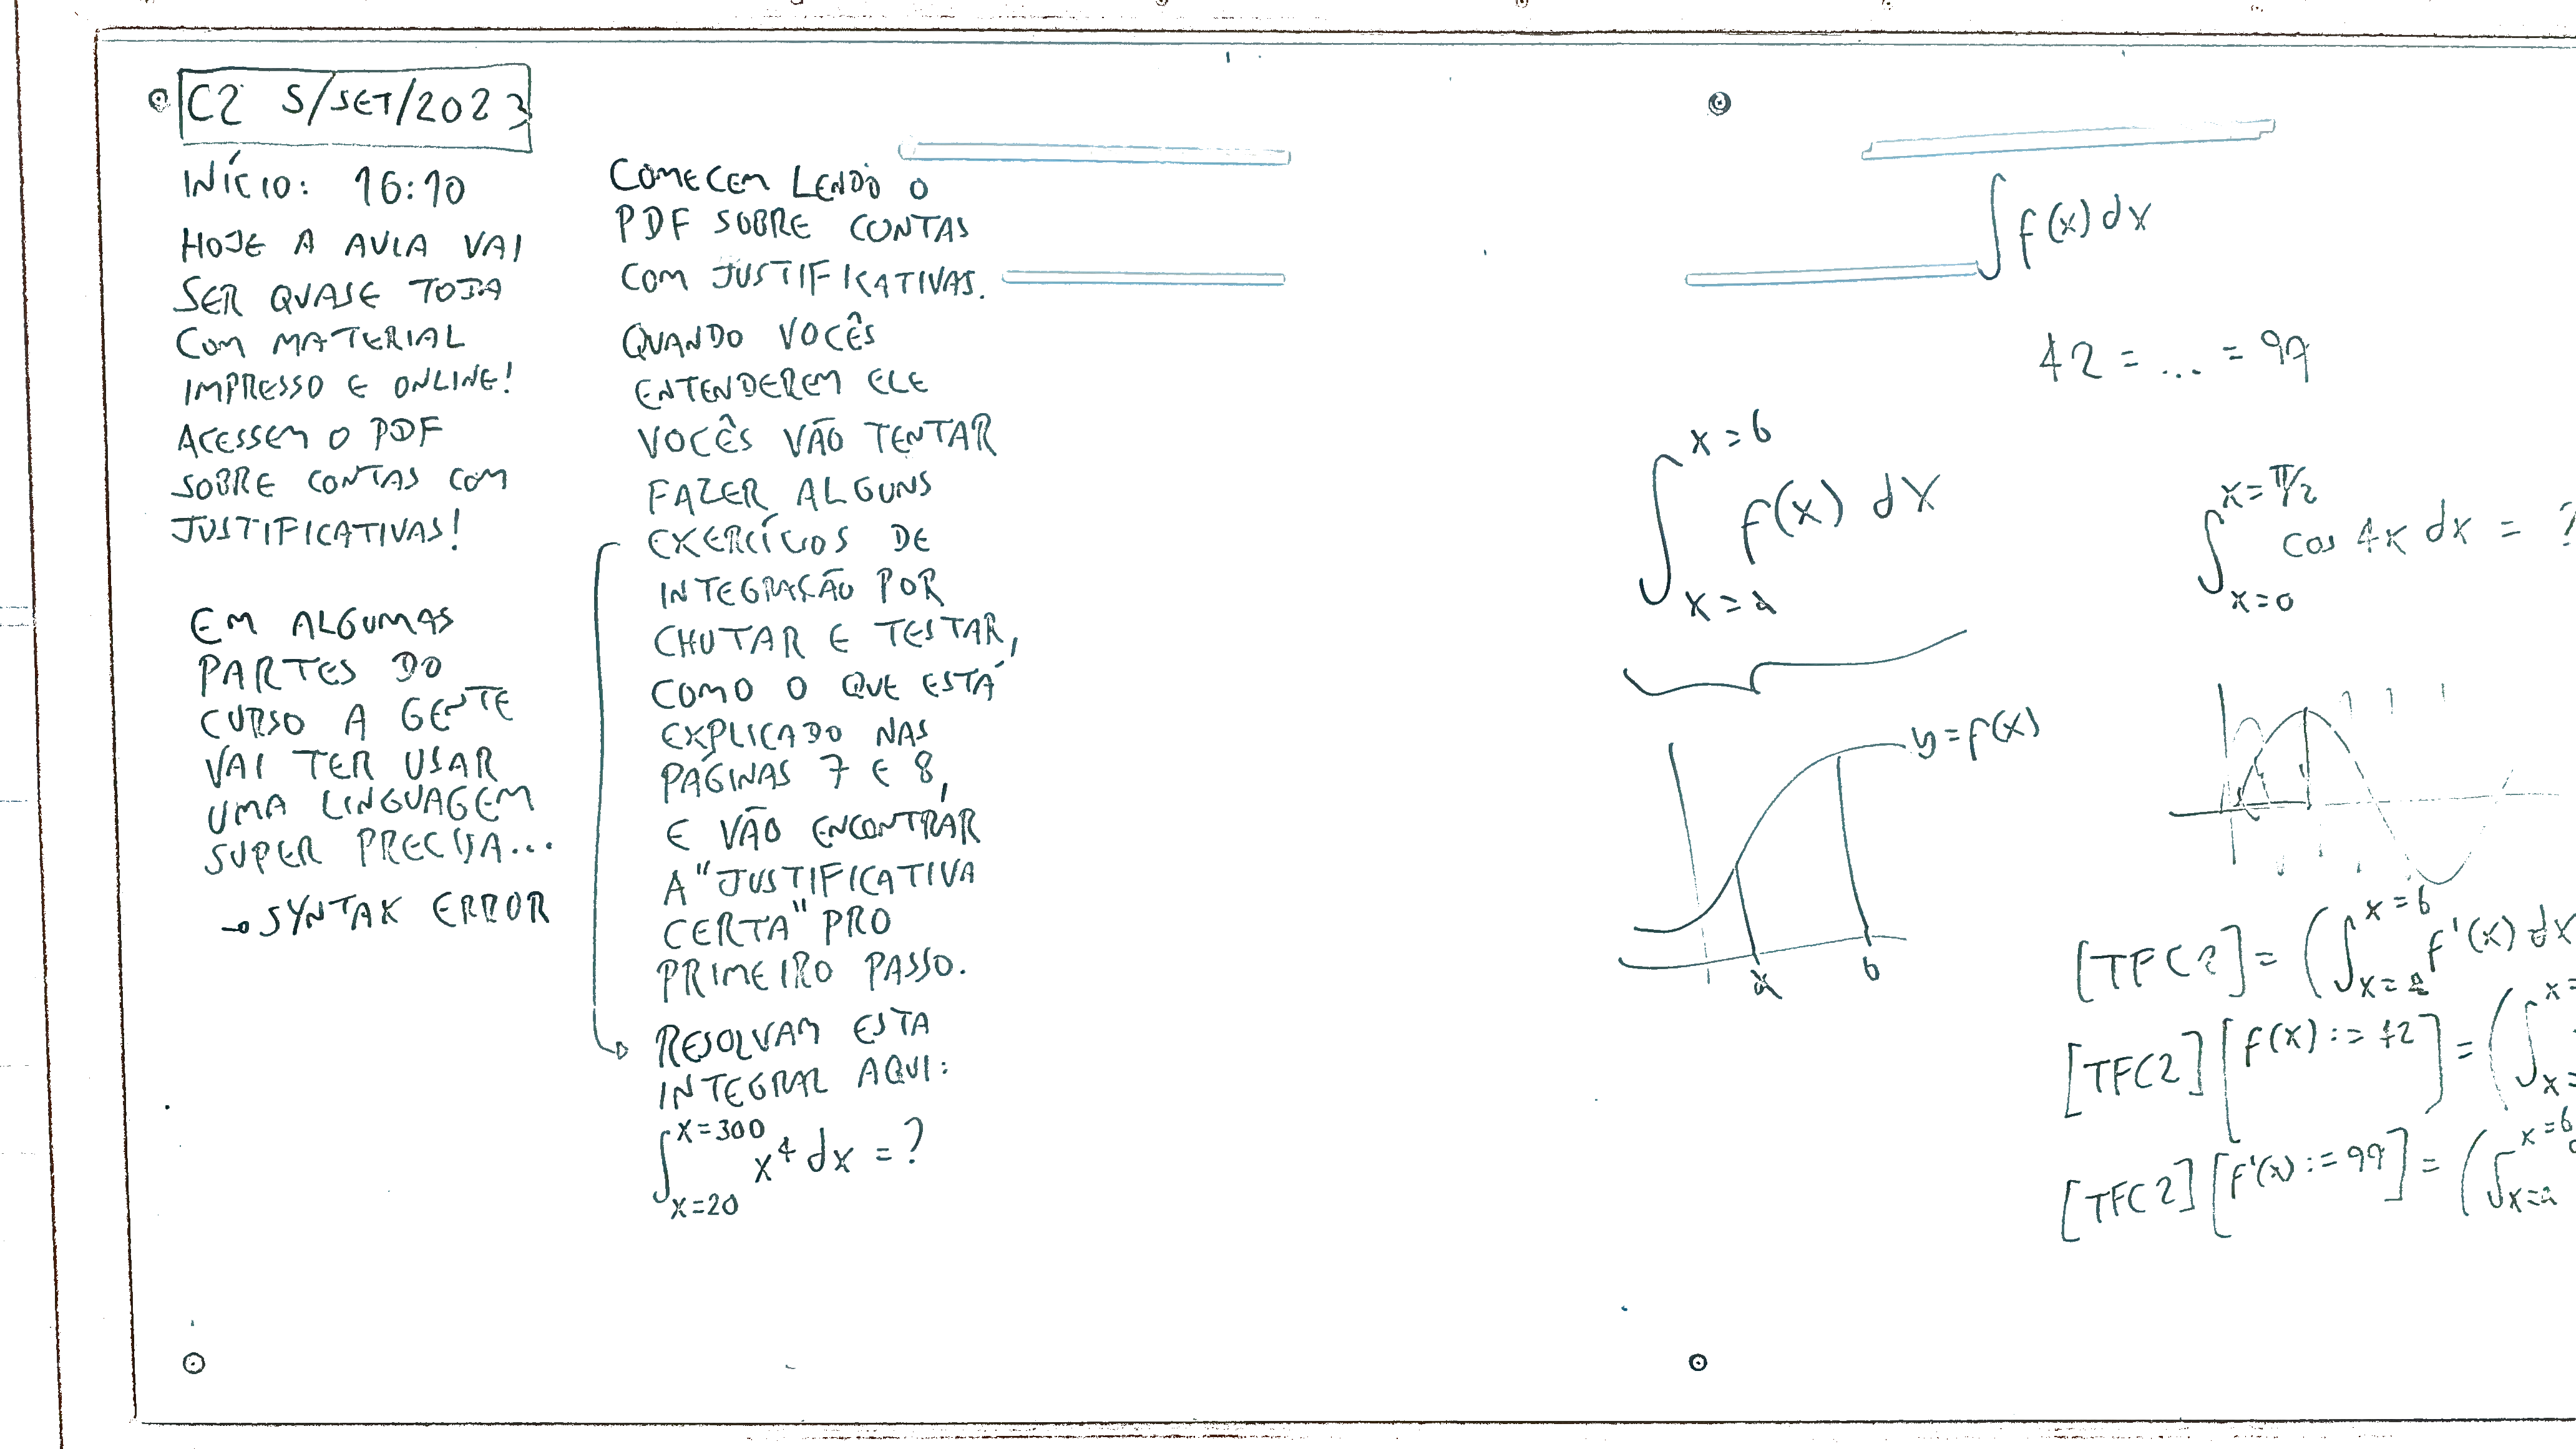 C2 5/SET/2023
INÍCIO: 16:10
HOJE A AULA VAI
SER QUASE TODA
COM MATERIAL
IMPRESSO E ONLINE!
ACESSEM O PDF
SOBRE CONTAS COM
JUSTIFICATIVAS!
EM ALGUMAS
PARTES DO
CURSO A GENTE
VAI TER USAR
UMA LINGUAGEM
SUPER PRECISA...
→ SYNTAX ERROR
COMECEM LENDO O
PDF SOBRE CONTAS
COM JUSTIFICATIVAS.
QUANDO VOCÊS
ENTENDEREM ELE
VOCÊS VÃO TENTAR
FAZER ALGUNS
EXERCÍCIOS DE
INTEGRAÇÃO POR
CHUTAR E TESTAR,
COMO O QUE ESTÁ
EXPLICADO NAS
PÁGINAS 7 E 8,
E VÃO ENCONTRAR
A "JUSTIFICATIVA
CERTA" PRO
PRIMEIRO PASSO.
RESOLVAM ESTA
INTEGRAL AQUI:
∫_{x=20}^{x=300} x⁴ dx = ?
∫ f(x) dx
42 = ... = 99
∫_{x=a}^{x=b} f(x) dx
y = f(x)
a b
∫_{x=0}^{x=π/2} cos 4x dx = ?
[TFC2] = (∫_{x=a}^{x=b} f'(x) dx
[TFC2] [f(x) := 42] = (∫_{x=}^{x=}
[TFC2] [f'(x) := 99] = (∫_{x=a}^{x=b}